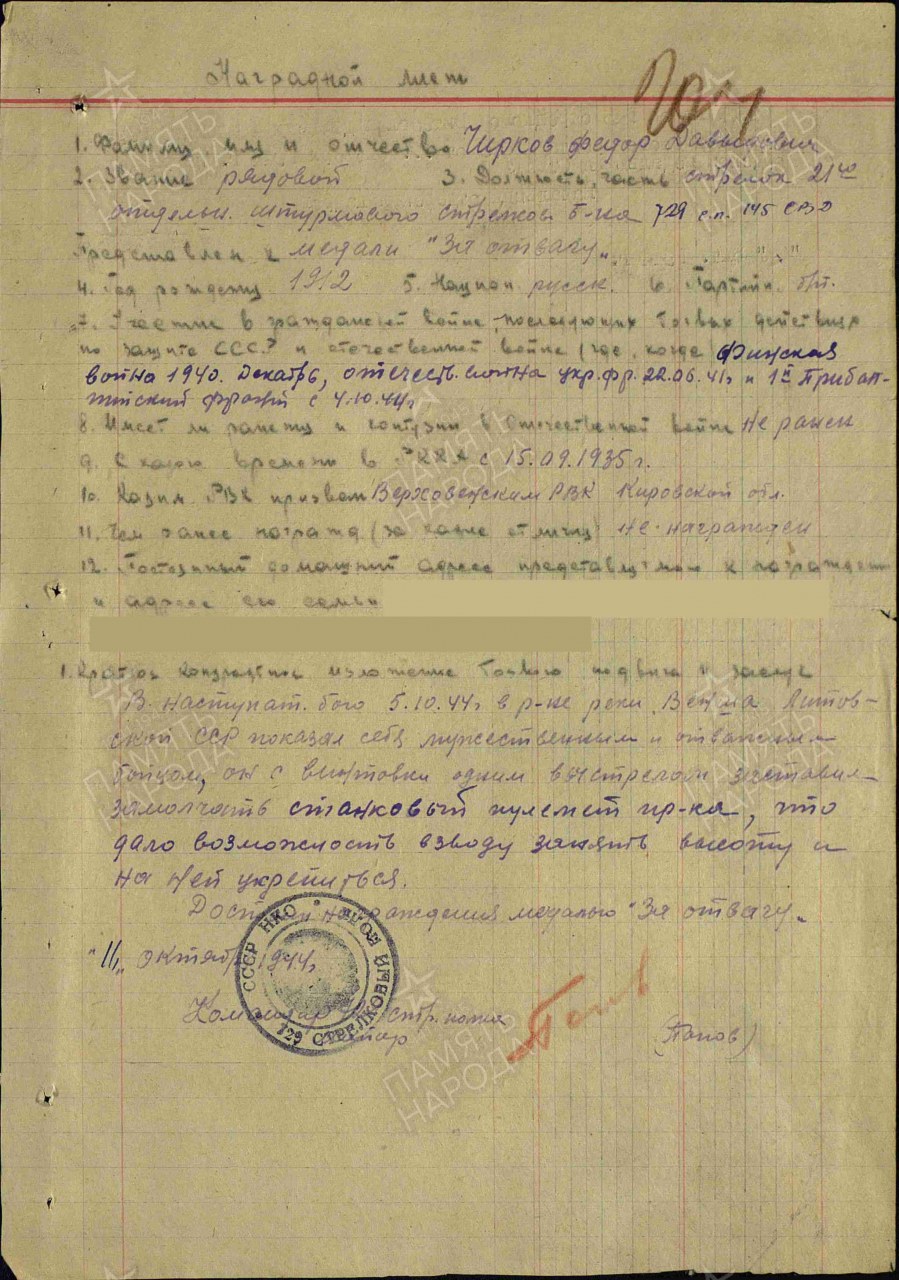 Наградной лист
1. Фамилия, имя и отчество Чирков Федор Давыдович
2. Звание рядовой 3. Должность, часть стрелок 21
отдельн. штурмового стрелков. б-на 729 с.п. 145 СВД
Представлен к медали "За отвагу"
4. Год рождения 1912 5. Национ русск. 6. Партийн. б/п.
7. Участие в гражданской войне, последующих боевых действиях
по защите СССР и отечественной войне (где, когда) Финская
война 1940. Декабрь, отечеств. война укр. фр. 22.06.41г и 1й Прибал-
тийский фронт с 4.10.44г
8. Имеет ли ранения и контузии в Отечественной войне Не ранен
9. С какого времени в РККА с 15.09.1935г.
10. Каким РВК призван Верховенским РВК Кировской обл.
11. Чем ранее награжд (за какие отличия) Не награжден
12. Постоянный домашний адрес представляемого к награждению
и адрес его семьи
1. Краткое конкретное изложение боевого подвига и заслуг
В наступат. бою 5.10.44г в р-не реки Вента Литов-
ской ССР показал себя мужественным и отважным
бойцом, он с винтовки одним выстрелом заставил
замолчать станковый пулемет пр-ка, что
дало возможность взводу занять высоту и
на ней укрепиться.
Достоин награждения медалью "За отвагу"
"11" октября 1944г
Командир стр. полка
майор (Попов)
СССР НКО 729 СТРЕЛКОВЫЙ ПОЛК
ПАМЯТЬ НАРОДА